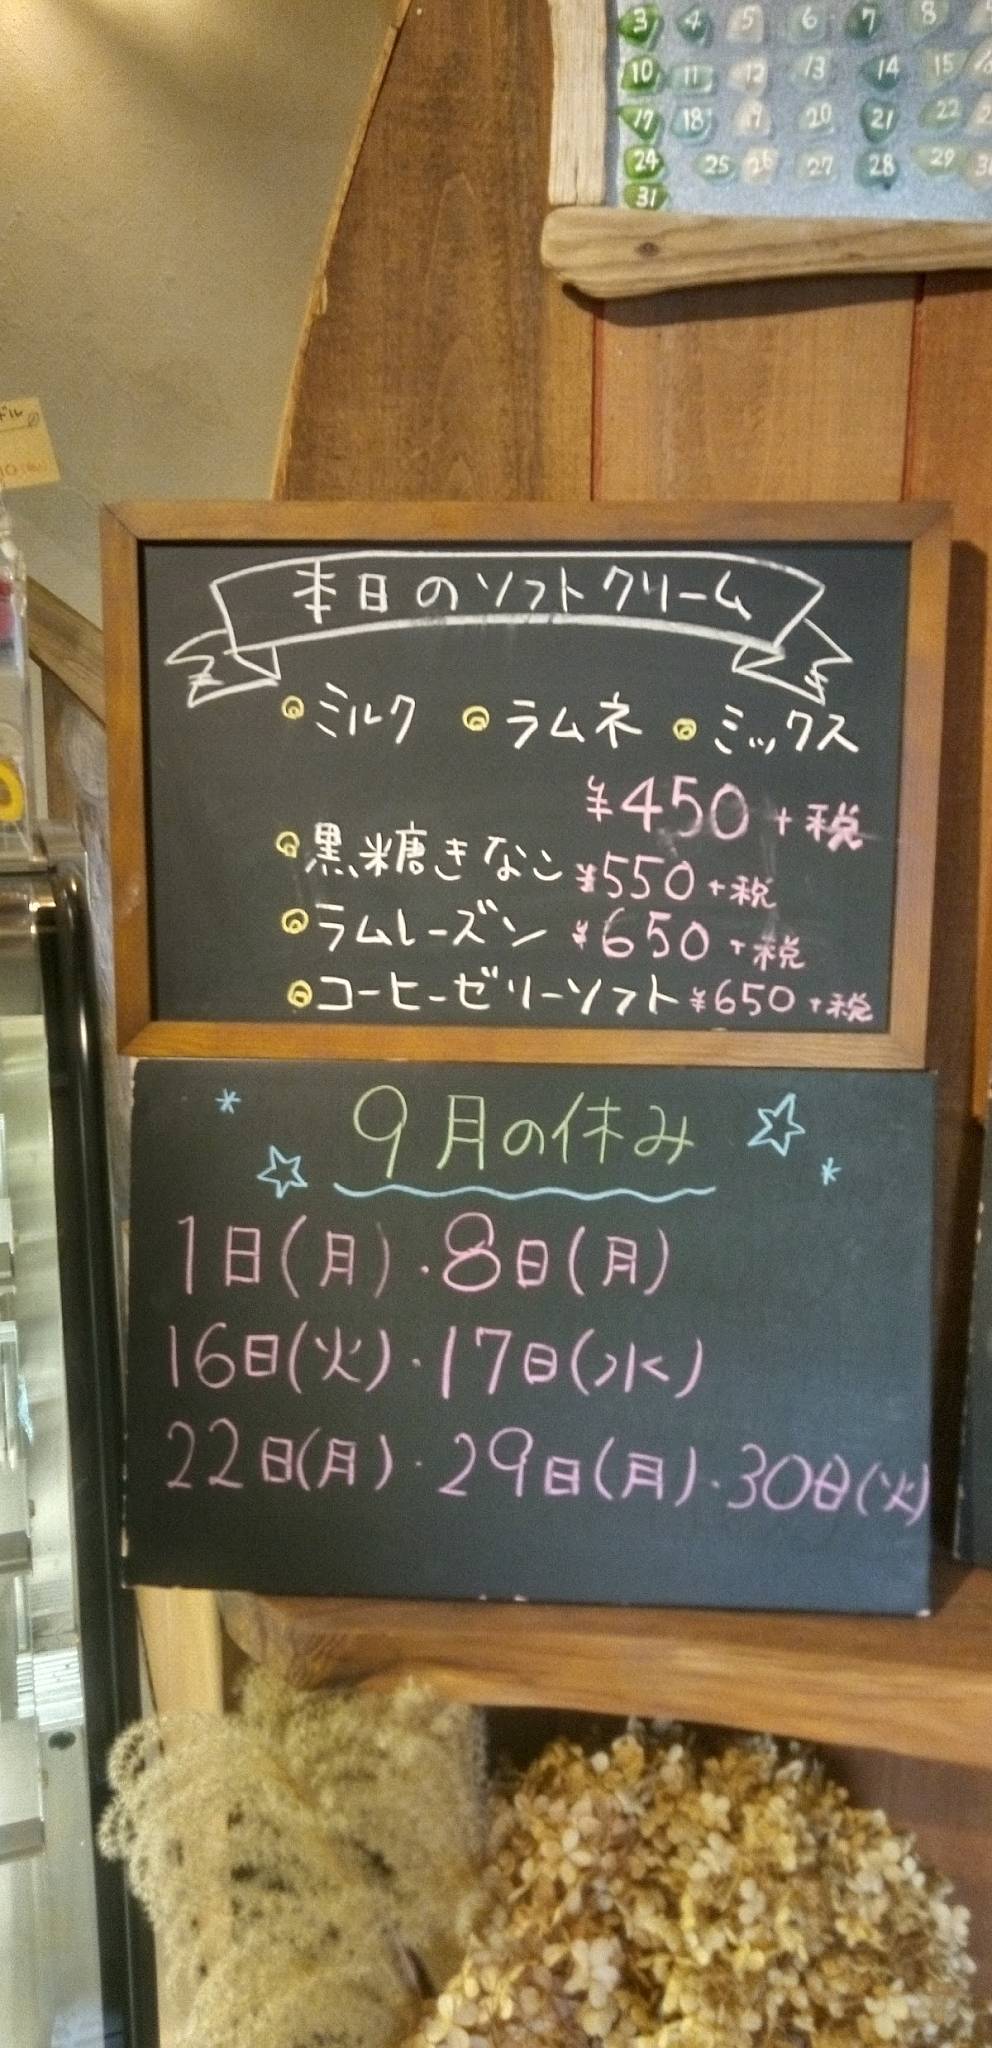 3 4 5 6 7 8
10 11 12 13 14 15
17 18 19 20 21 22
24 25 26 27 28 29
31
ドル
本日のソフトクリーム
ミルク ラムネ ミックス
¥450+税
黒糖きなこ ¥550+税
ラムレーズン ¥650+税
コーヒーゼリーソフト ¥650+税
9月の休み
1日(月)・8日(月)
16日(火)・17日(水)
22日(月)・29日(月)・30日(火)